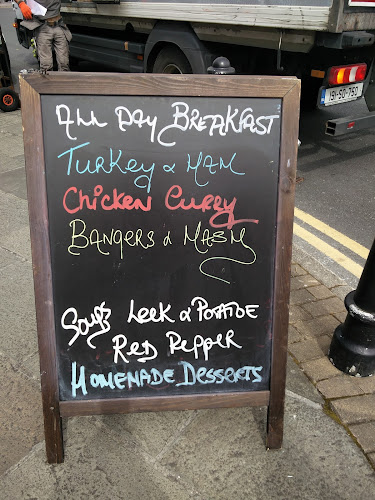 191-SO-750
All Day BREAKFAST
Turkey & HAM
Chicken Curry
BANGERS & MASH
Soups Leek & POTATOE
Red Pepper
HOMEMADE Desserts